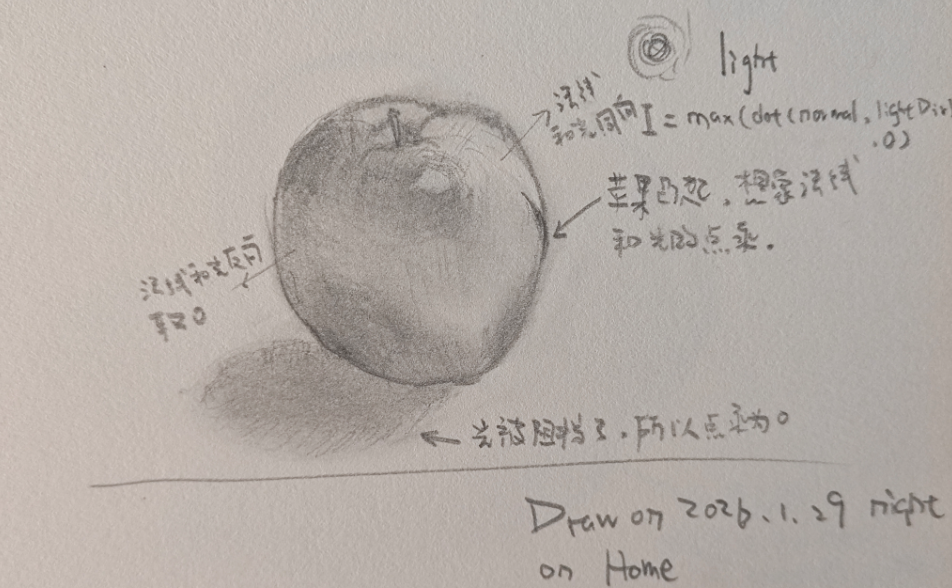 light
法线
和光同向 I = max(dot(normal, lightDir)
,0)
苹果凸起,想象法线
和光的点乘.
法线和光反向
取0
光被阻挡了,所以点乘为0
Draw on 2026.1.29 night
on Home